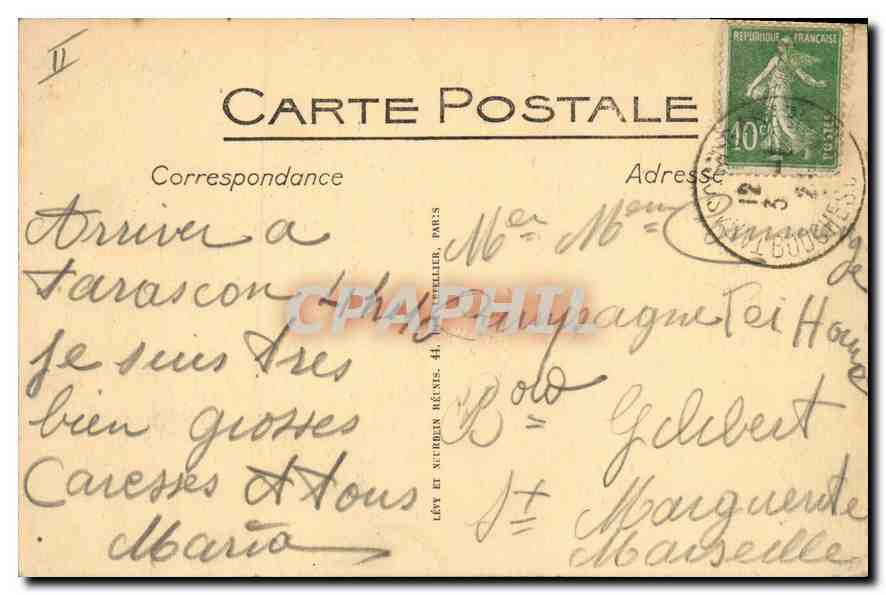 II
CARTE POSTALE
Correspondance
Adresse
REPUBLIQUE FRANÇAISE
10c
POSTES
12
3
BOUCHES
Arriver a
tarascon
je suis tres
bien grosses
Caresses A tous
Maria
LÉVY ET NEURDEIN RÉUNIS, 44, RUE LETELLIER, PARIS
Mer Mem
Campagne Pei
Bord Gilbert
St Marguerite
Marseille
CPAPHIL